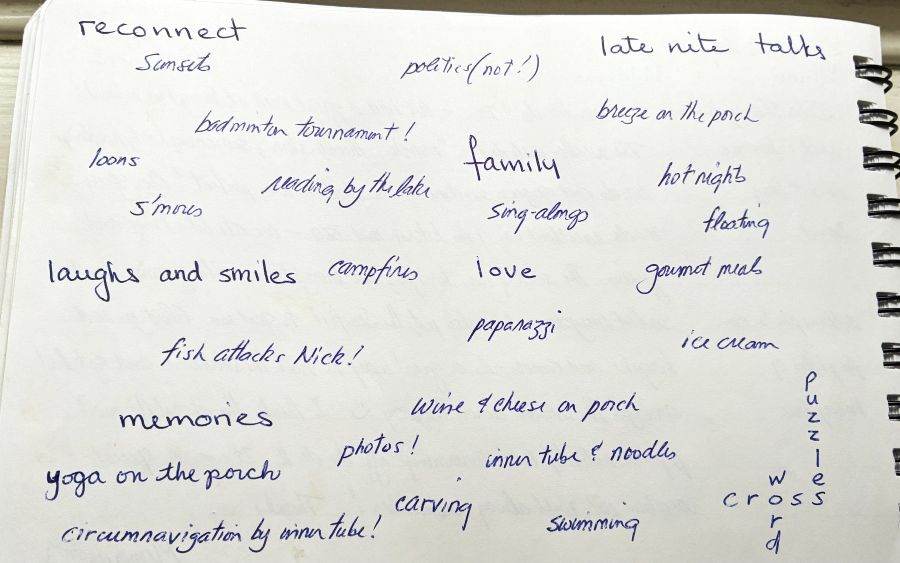 reconnect
late nite talks
sunsets
politics (not!)
breeze on the porch
badminton tournament!
loons
family
reading by the lake
hot nights
s'mores
sing-alongs
floating
laughs and smiles
campfires
love
gourmet meals
paparazzi
ice cream
fish attacks Nick!
wine & cheese on porch
memories
photos!
inner tube & noodles
yoga on the porch
carving
swimming
circumnavigation by inner tube!
puzzles
cross
word